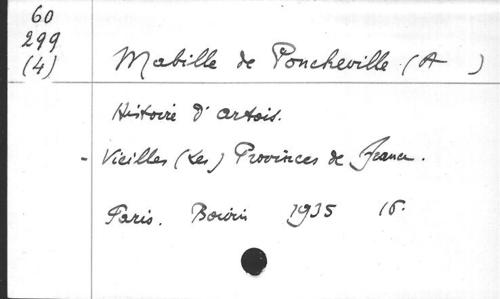 60
299
(4)
Mabille de Poncheville (A )
Histoire d'Artois.
- Vieilles (Les) Provinces de France.
Paris. Boivin 1935 16°.